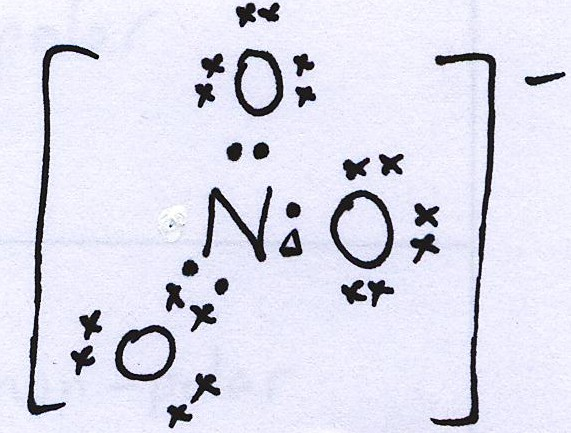 O
N O
O
-